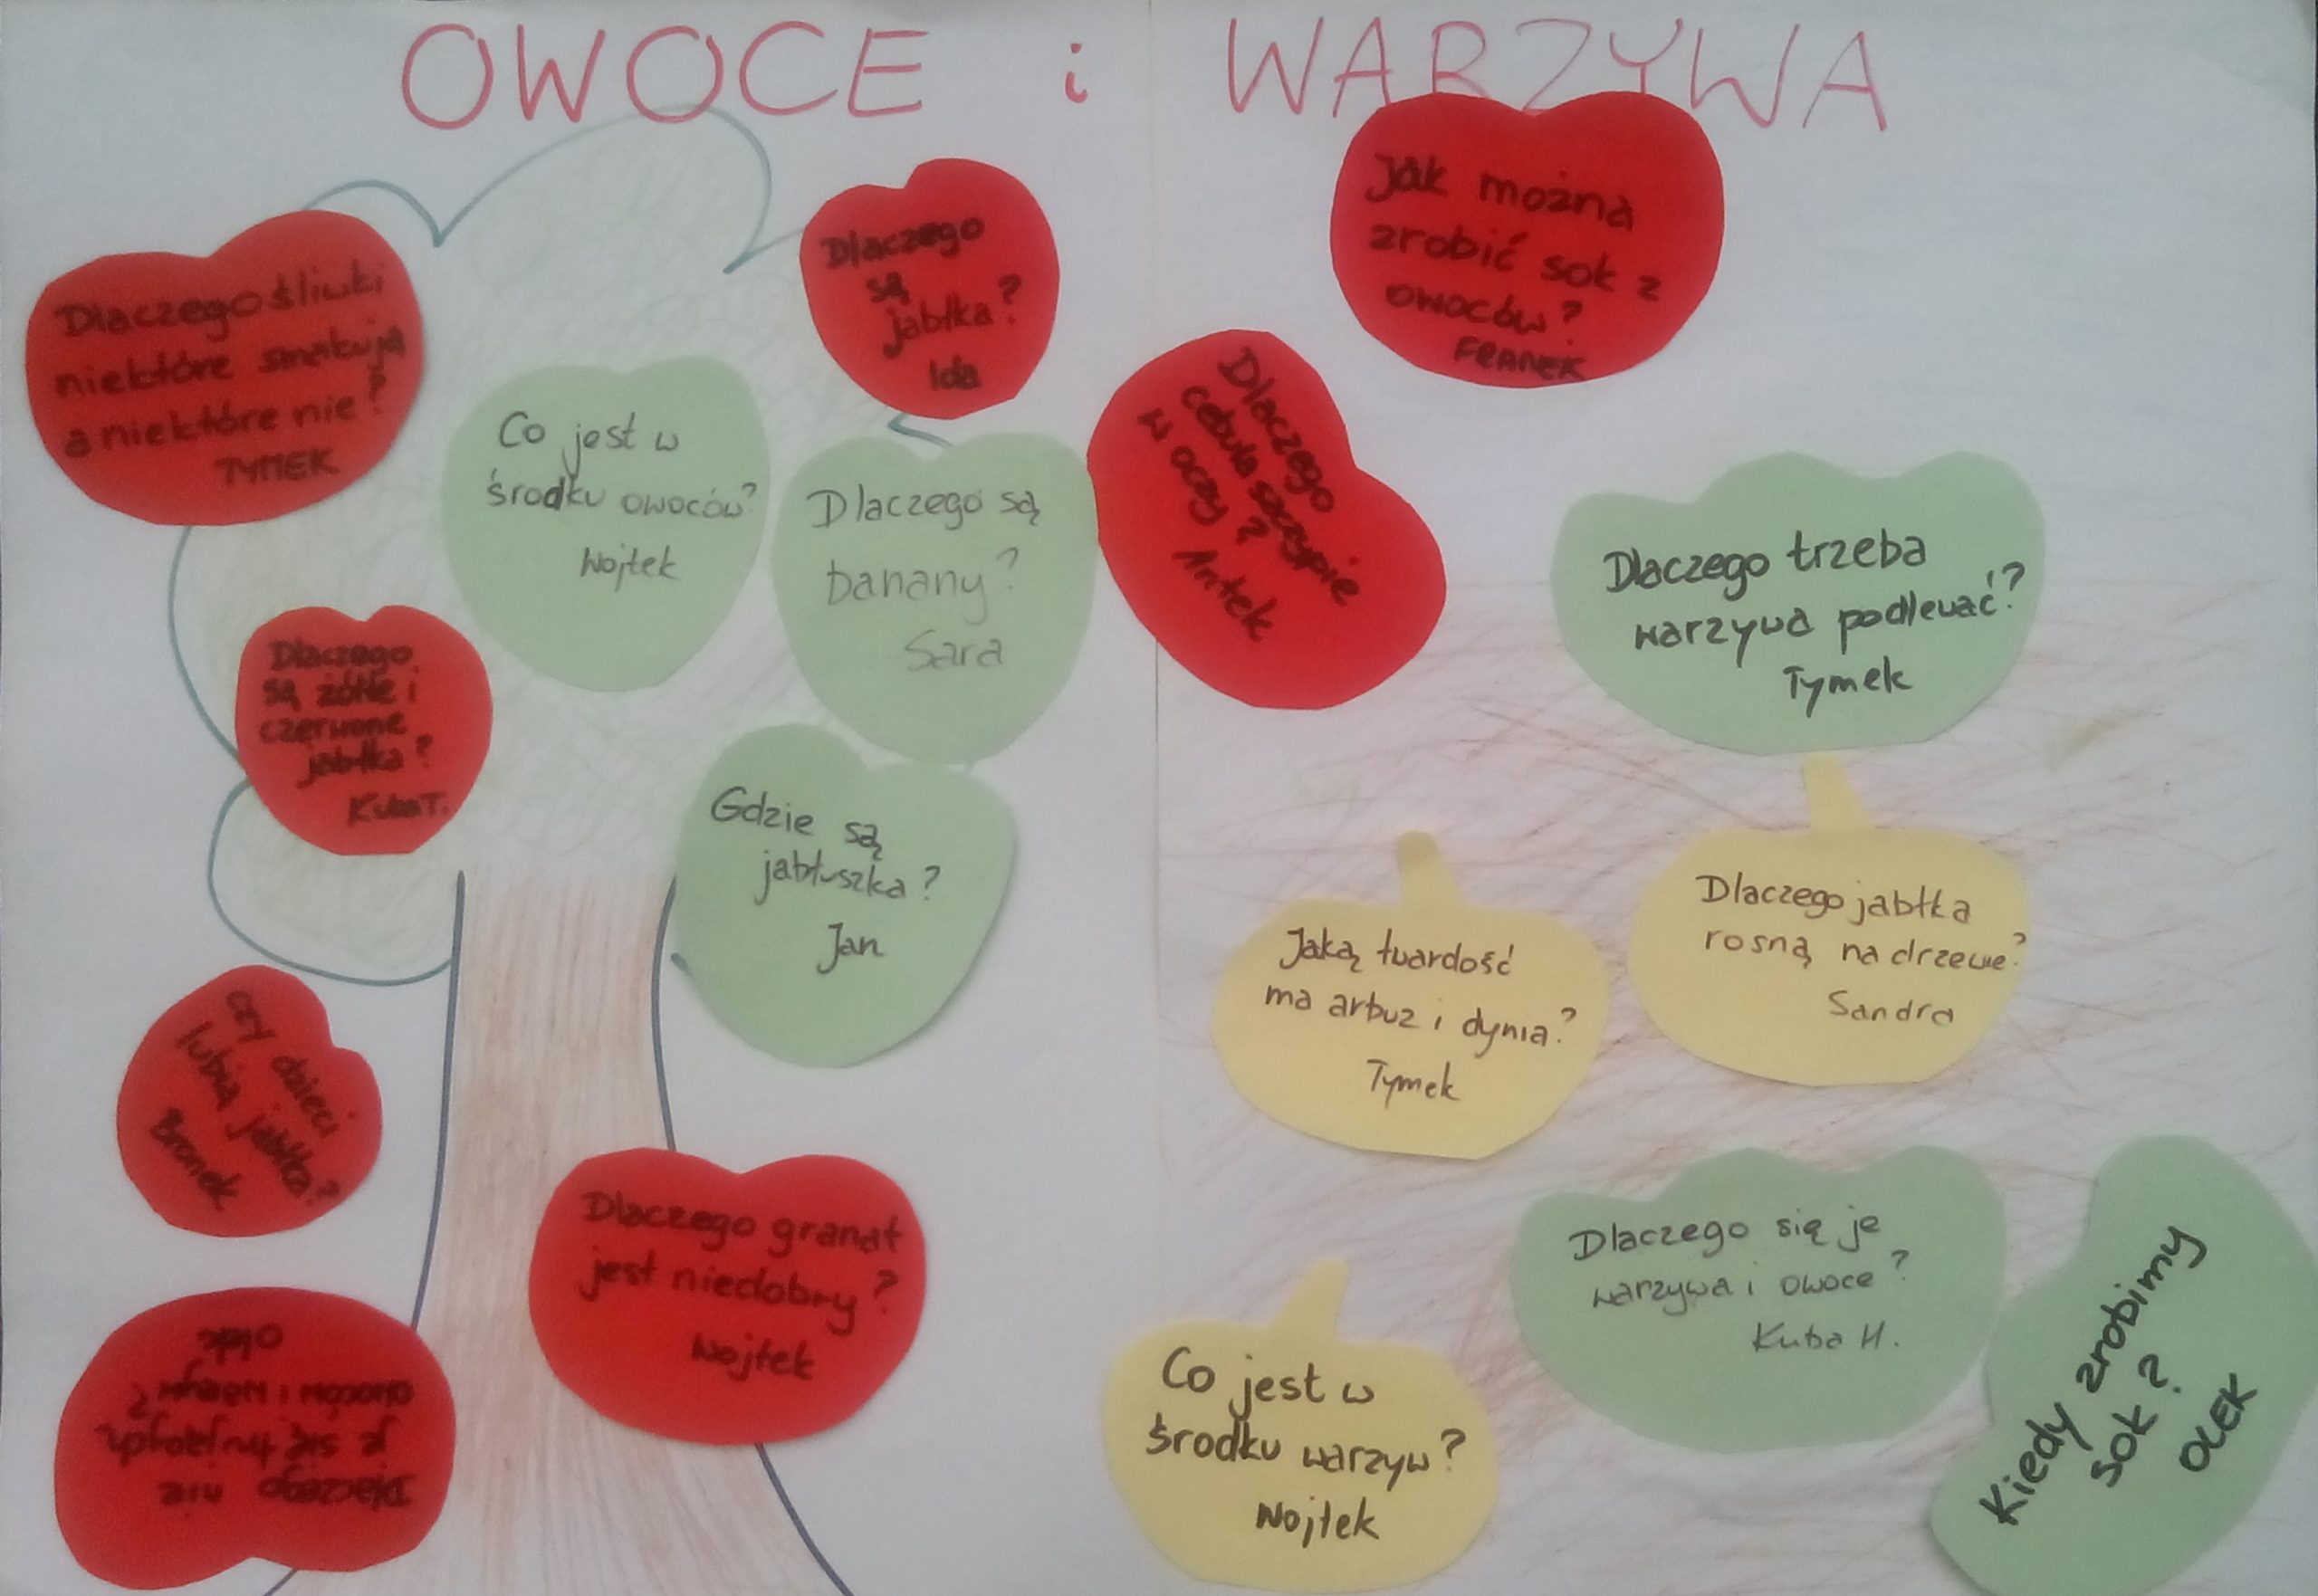 OWOCE i WARZYWA
Dlaczego śliwki
niektóre smakują
a niektóre nie?
TYMEK
Co jest w
środku owoców?
Wojtek
Dlaczego
są
jabłka?
Ida
Dlaczego są
banany?
Sara
Dlaczego
są żółte i
czerwone
jabłka?
Kuba T.
Gdzie są
jabłuszka?
Jan
Czy dzieci
lubią jabłka?
Bronek
Dlaczego granat
jest niedobry?
Wojtek
Dlaczego nie
je się trujących
owoców i warzyw?
Olek
Jak można
zrobić sok z
owoców?
FRANEK
Dlaczego
cebula szczypie
w oczy?
Antek
Dlaczego trzeba
warzywa podlewać?
Tymek
Dlaczego jabłka
rosną na drzewie?
Sandra
Jaką twardość
ma arbuz i dynia?
Tymek
Dlaczego się je
warzywa i owoce?
Kuba H.
Co jest w
środku warzyw?
Wojtek
Kiedy zrobimy
sok?
OLEK